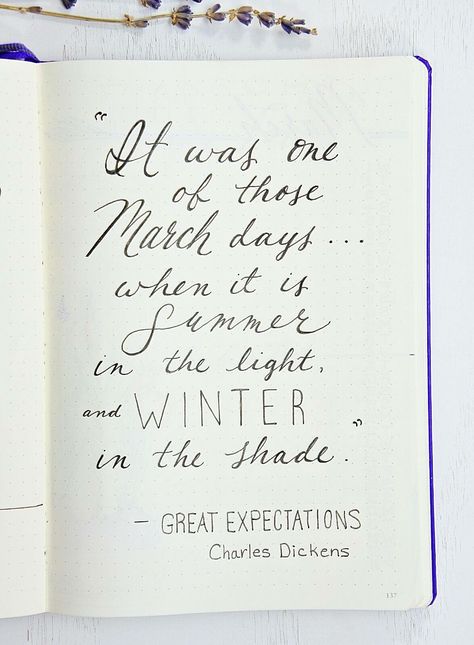 "It was one
of those
March days...
when it is
Summer
in the light,
and WINTER
in the shade."
- GREAT EXPECTATIONS
Charles Dickens
137